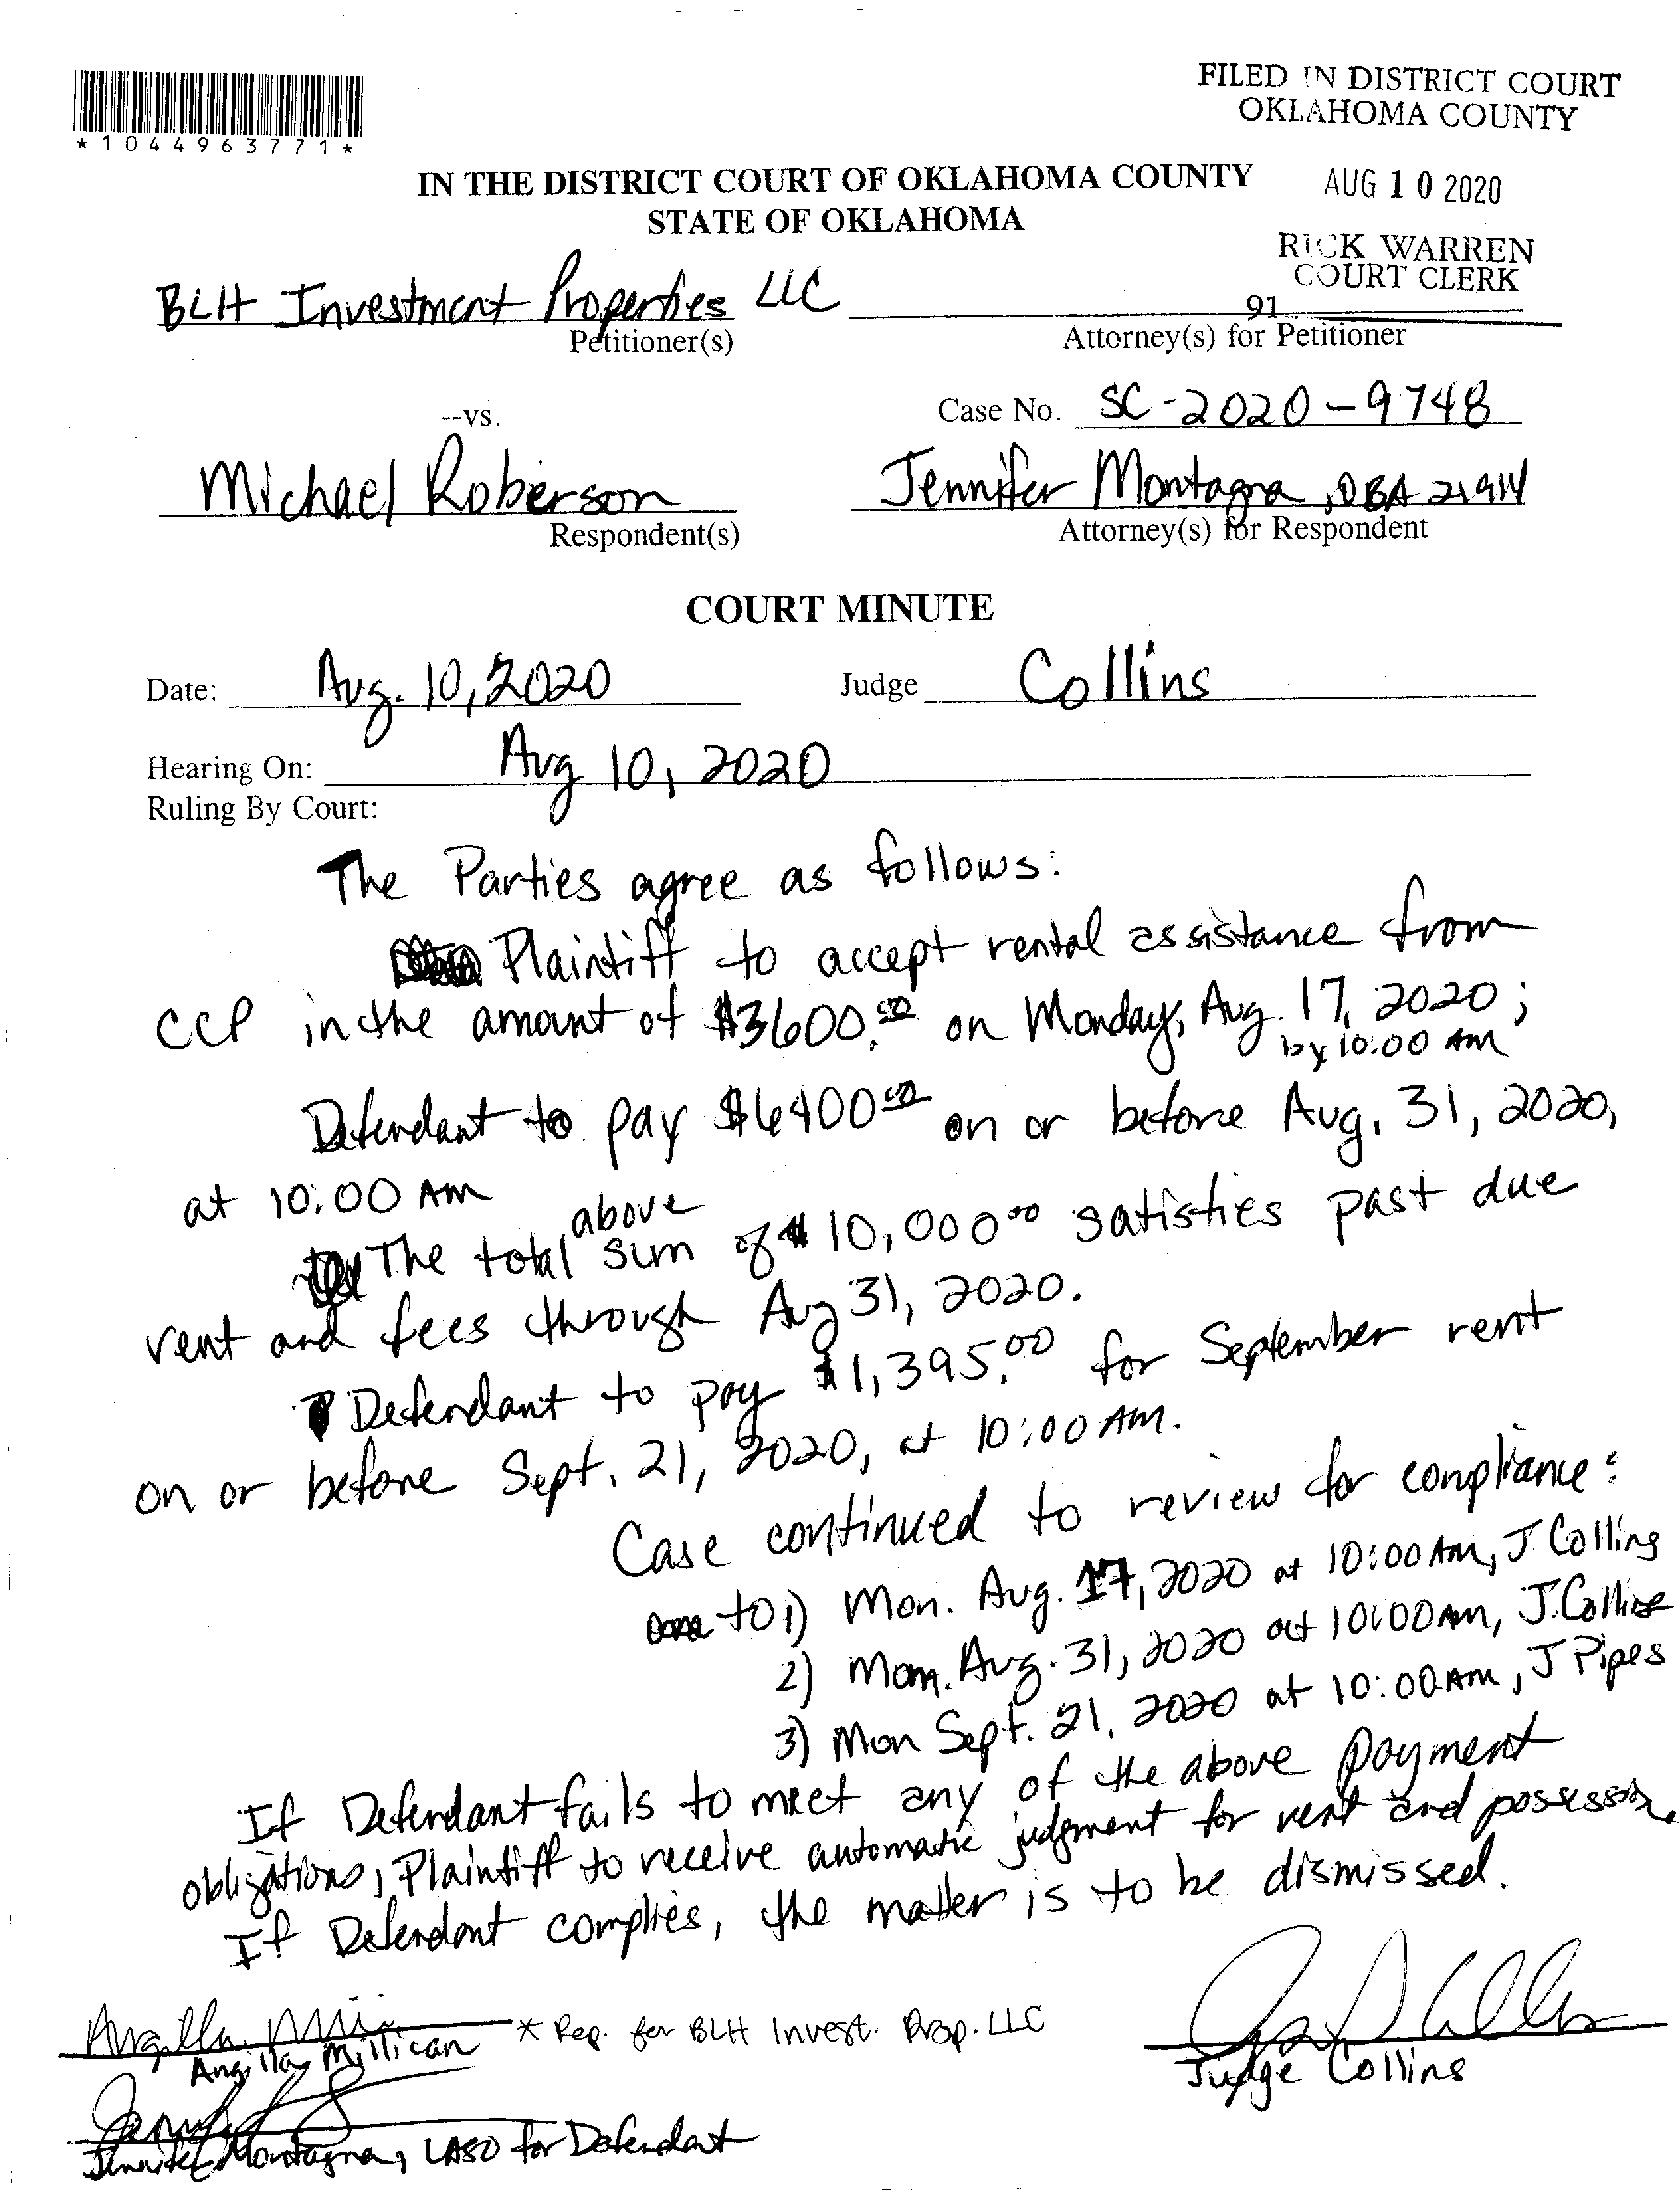 FILED IN DISTRICT COURT
OKLAHOMA COUNTY
*1044963771*
IN THE DISTRICT COURT OF OKLAHOMA COUNTY
STATE OF OKLAHOMA
AUG 10 2020
RICK WARREN
COURT CLERK
91
BLH Investment Properties LLC
Petitioner(s)
Attorney(s) for Petitioner
--vs.
Case No. SC-2020-9748
Michael Roberson
Respondent(s)
Jennifer Montagna, OBA 21914
Attorney(s) for Respondent
COURT MINUTE
Date: Aug. 10, 2020
Judge Collins
Hearing On: Aug 10, 2020
Ruling By Court:
The Parties agree as follows:
Plaintiff to accept rental assistance from
CCP in the amount of $3600.00 on Monday, Aug. 17, 2020;
by 10:00 AM
Defendant to pay $6400.00 on or before Aug. 31, 2020,
at 10:00 AM
above
The total sum of $10,000.00 satisfies past due
rent and fees through Aug 31, 2020.
Defendant to pay $1,395.00 for September rent
on or before Sept. 21, 2020, at 10:00 AM.
Case continued to review for compliance:
to 1) Mon. Aug. 17, 2020 at 10:00 AM, J. Collins
2) Mon. Aug. 31, 2020 at 10:00 AM, J. Collins
3) Mon Sept. 21, 2020 at 10:00 AM, J Pipes
If Defendant fails to meet any of the above payment
obligations, Plaintiff to receive automatic judgment for rent and possession.
If Defendant complies, the matter is to be dismissed.
Angilla Millican * Rep. for BLH Invest. Prop. LLC
Judge Collins
Jennifer Montagna, LASO for Defendant